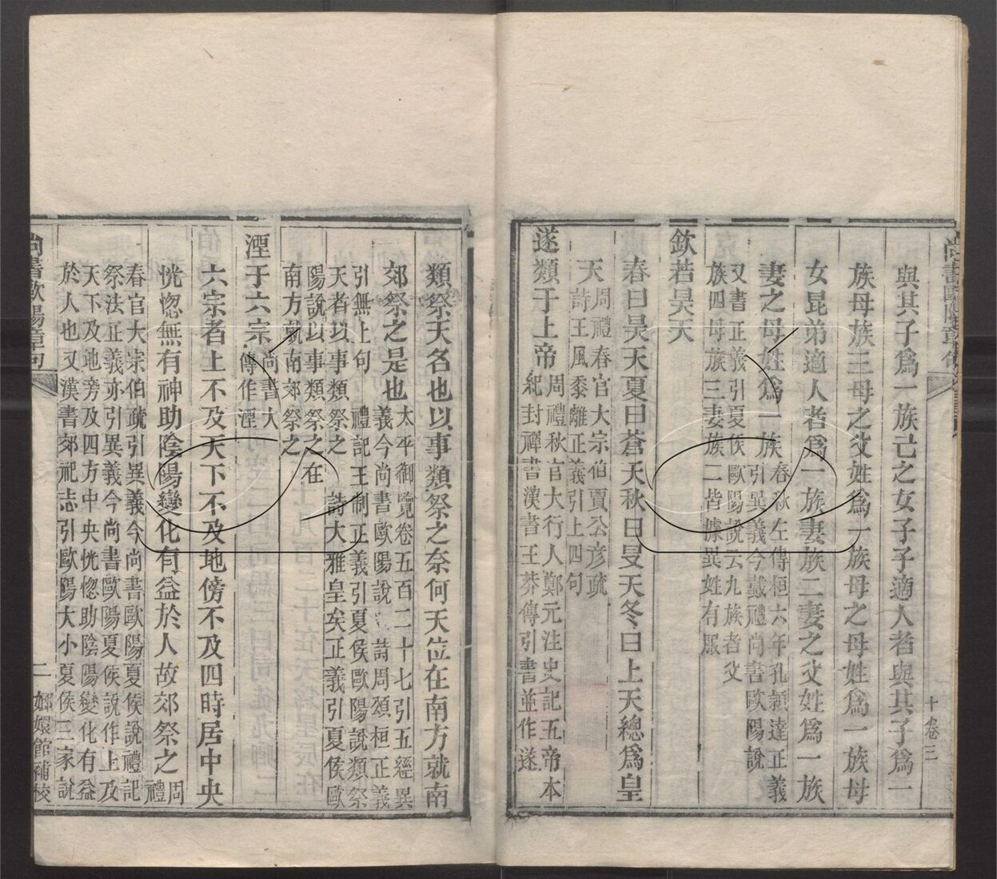 與其子爲一族己之女子子適人者與其子爲一
族母族三母之父姓爲一族母之母姓爲一族母
女昆弟適人者爲一族妻族二妻之父姓爲一族
妻之母姓爲一族
春秋左傳桓六年孔穎達正義
引異義今戴禮尚書歐陽說
又書正義引夏侯歐陽說云九族者父
族四母族三妻族二皆據異姓有服
欽若昊天
春曰昊天夏曰蒼天秋曰旻天冬曰上天總爲皇
天
周禮春官大宗伯賈公彥疏
詩王風黍離正義引上四句
遂類于上帝
周禮秋官大行人鄭元注史記五帝本
紀封禪書漢書王莽傳引書並作遂
類祭天名也以事類祭之奈何天位在南方就南
郊祭之是也
太平御覽卷五百二十七引五經異
義今尚書歐陽說 詩周頌桓正義
引無上句 禮記王制正義引夏侯歐陽說類祭
天者以事類祭之 詩大雅皇矣正義引夏侯歐
陽說以事類祭之在
南方就南郊祭之
湮于六宗
尚書大
傳作湮
六宗者上不及天下不及地傍不及四時居中央
恍惚無有神助陰陽變化有益於人故郊祭之
周禮
春官大宗伯疏引異義今尚書歐陽夏侯說禮記
祭法正義亦引異義今尚書歐陽夏侯說作上及
天下及地旁及四方中央恍惚助陰陽變化有益
於人也又漢書郊祀志引歐陽大小夏侯三家說
尚書歐陽章句
二
嫏嬛館補校